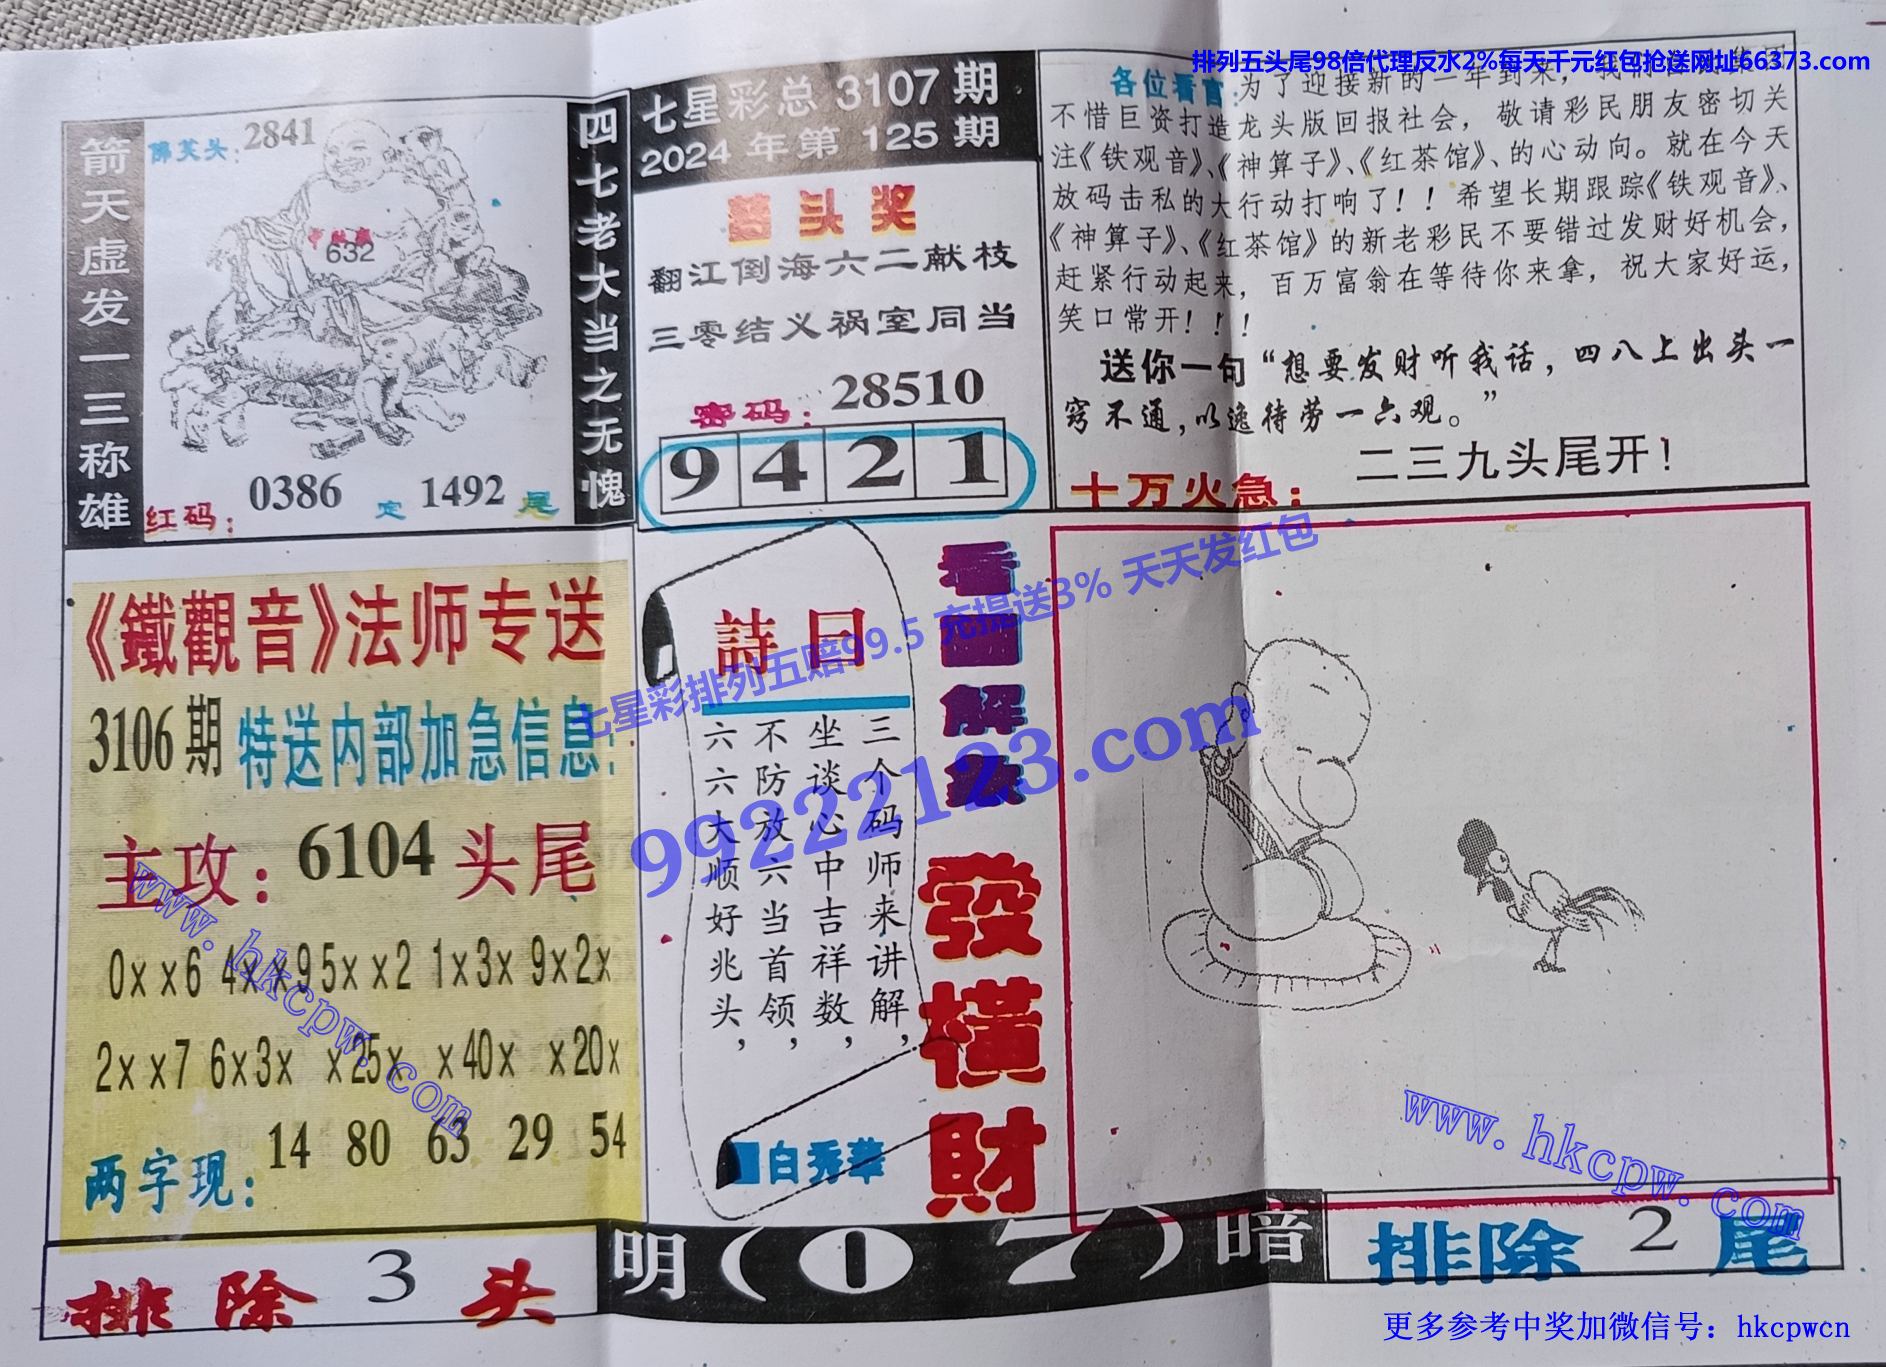 排列五头尾98倍代理反水2%每天千元红包抢送网址66373.com
箭天虚发一三称雄
佛笑头:2841
中肚藏
632
红码:0386 定 1492 尾
四七老大当之无愧
七星彩总 3107 期
2024 年第 125 期
头奖
翻江倒海六二献枝
三零结义祸室同当
密码:28510
9 4 2 1
各位看官:为了迎接新的一年到来,我们
不惜巨资打造龙头版回报社会,敬请彩民朋友密切关
注《铁观音》、《神算子》、《红茶馆》、的心动向。就在今天
放码击私的大行动打响了!!希望长期跟踪《铁观音》、
《神算子》、《红茶馆》的新老彩民不要错过发财好机会,
赶紧行动起来,百万富翁在等待你来拿,祝大家好运,
笑口常开!!!
送你一句“想要发财听我话,四八上出头一
窍不通,以逸待劳一六观。”
二三九头尾开!
十万火急:
《鐵觀音》法师专送
3106期 特送内部加急信息:
主攻:6104 头尾
0xx6 4xx9 5xx2 1x3x 9x2x
2xx7 6x3x x25x x40x x20x
两字现:14 80 63 29 54
詩曰
三个码师来讲解,
坐谈心中吉祥数,
不防放六当首领,
六六大顺好兆头,
白秀华
看图解款
發橫財
七星彩排列五赔99.5 充提送3% 天天发红包
99222123.com
www.hkcpw.com
www.hkcpw.com
排除 3 头
明(0 7)暗
排除 2 尾
更多参考中奖加微信号:hkcpwcn